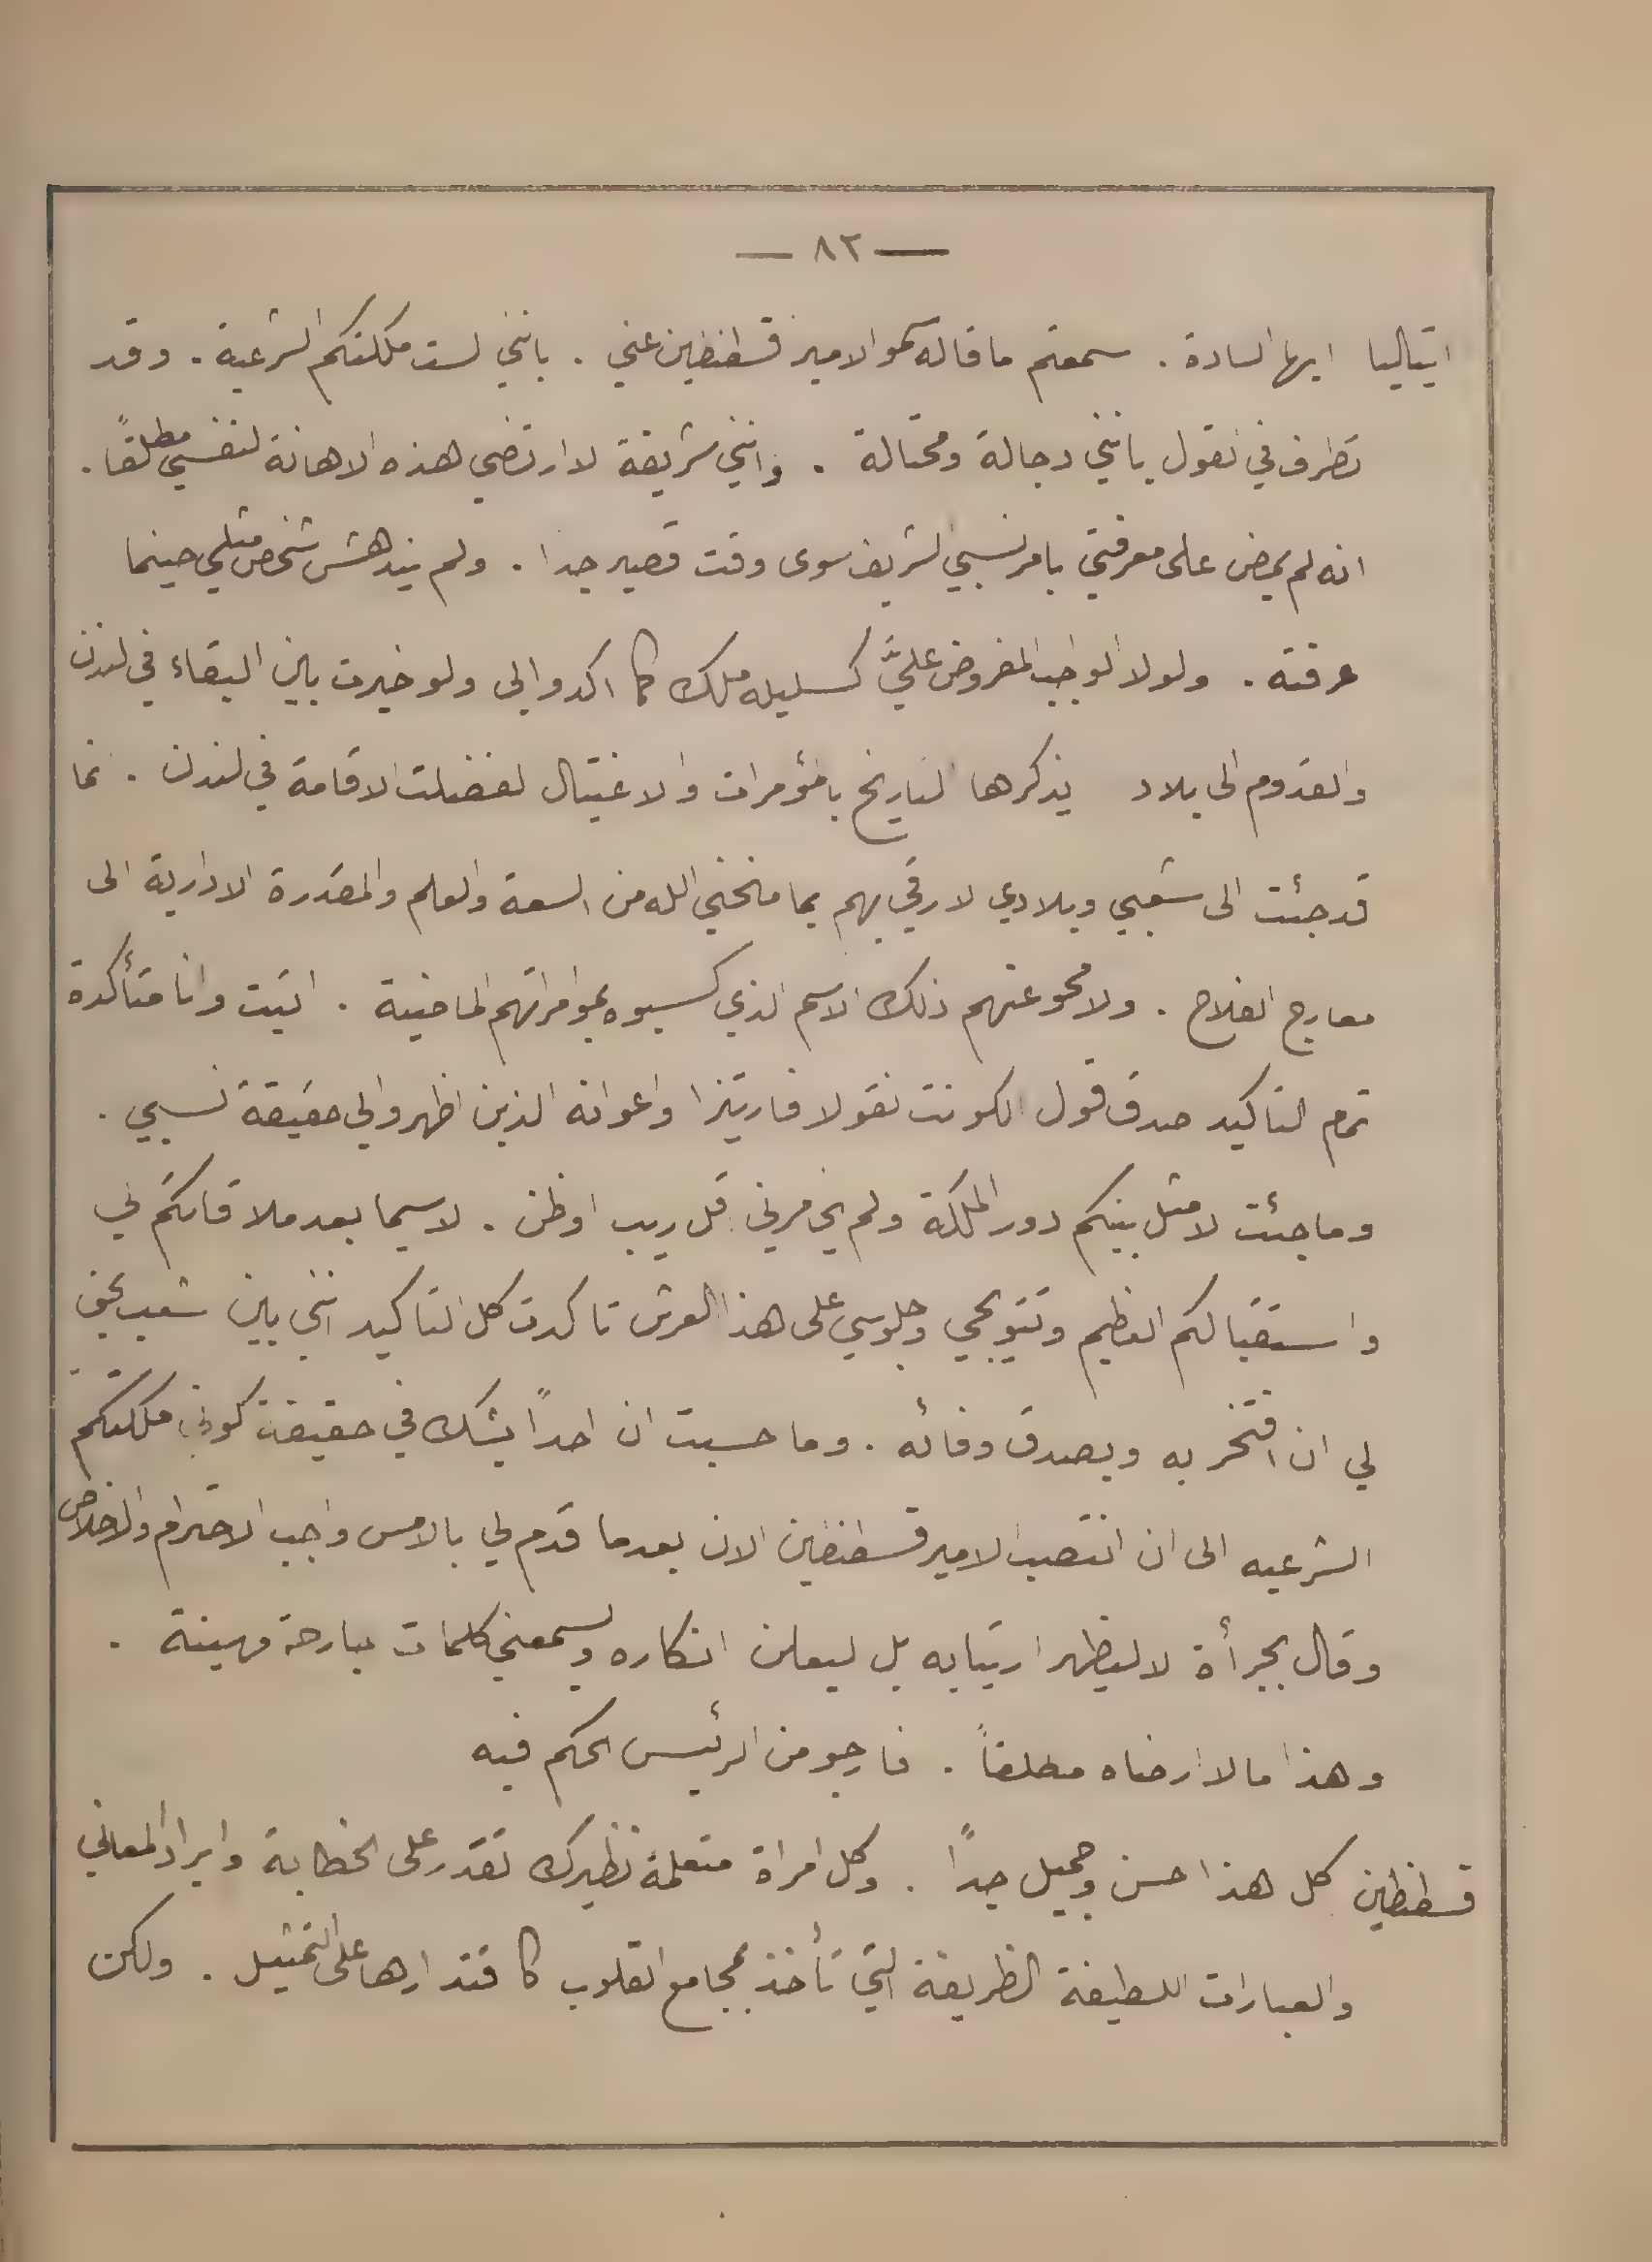 — ٨٢ —
ايتاليا ايها السادة . سمعتم ما قاله سمو الامير قسطنطين عني . بانني لست ملكتكم الشرعية . وقد
تطرف في القول بانني دجالة ومحتالة . وانني شريفة لا ارتضي هذه الاهانة لنفسي مطلقاً .
انه لم يمض على معرفتي بامر نسبي الشريف سوى وقت قصير جدا . ولم يندهش شخص مثلي حينما
عرفته . ولولا الواجب المفروض عليَّ كسليله ملك كما اكدوا لي ولو خيرت بين البقاء في لندن
والقدوم الى بلاد يذكرها التاريخ بالمؤمرات والاغتيال لفضلت الاقامة في لندن . انما
قد جئت الى شعبي وبلادي لارقي بهم بما منحني الله من السعة والعلم والمقدرة الادارية الى
معارج الفلاح . ولامحو عنهم ذلك الاسم الذي كسبوه بموامراتهم الماضية . اتيت وانا متأكدة
تمام التاكيد صدق قول الكونت نقولا فاريتزا واعوانه الذين اظهروا لي حقيقة نسبي .
وما جئت لامثل بينكم دور الملكة ولم يخامرني اقل ريب او ظن . لاسيما بعد ملاقاتكم لي
واستقبالكم العظيم وتتويجي وجلوسي على هذا العرش تاكدت كل التاكيد انني بين شعب يحق
لي ان افتخر به وبصدق وفائه . وما حسبت ان احداً يشك في حقيقة كوني ملكتكم
الشرعيه الى ان انتصب الامير قسطنطين الان بعدما قدم لي بالامس واجب الاحترام والاخلاص
وقال بجرأة لا ليظهر ارتيابه بل ليعلن انكاره وليسمعني كلمات جارحة مهينة .
وهذا ما لا ارضاه مطلقاً . فارجو من الرئيس الحكم فيه
قسطنطين كل هذا حسن وجميل جداً . وكل امراة متعلمة نظيرك تقدر على الخطابة وايراد المعاني
والعبارات اللطيفة الظريفة التي تأخذ بمجامع القلوب كاقتدارها على التمثيل . ولكن